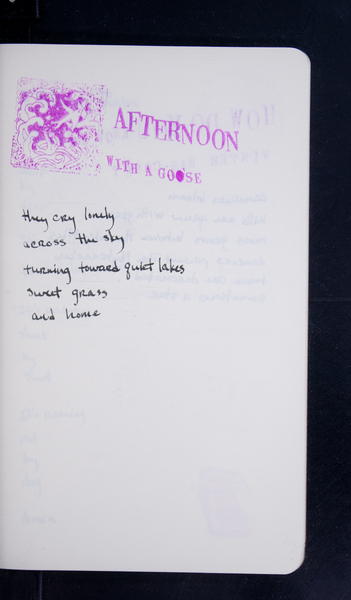 AFTERNOON
WITH A GOOSE
they cry lonely
across the sky
turning toward quiet lakes
sweet grass
and home